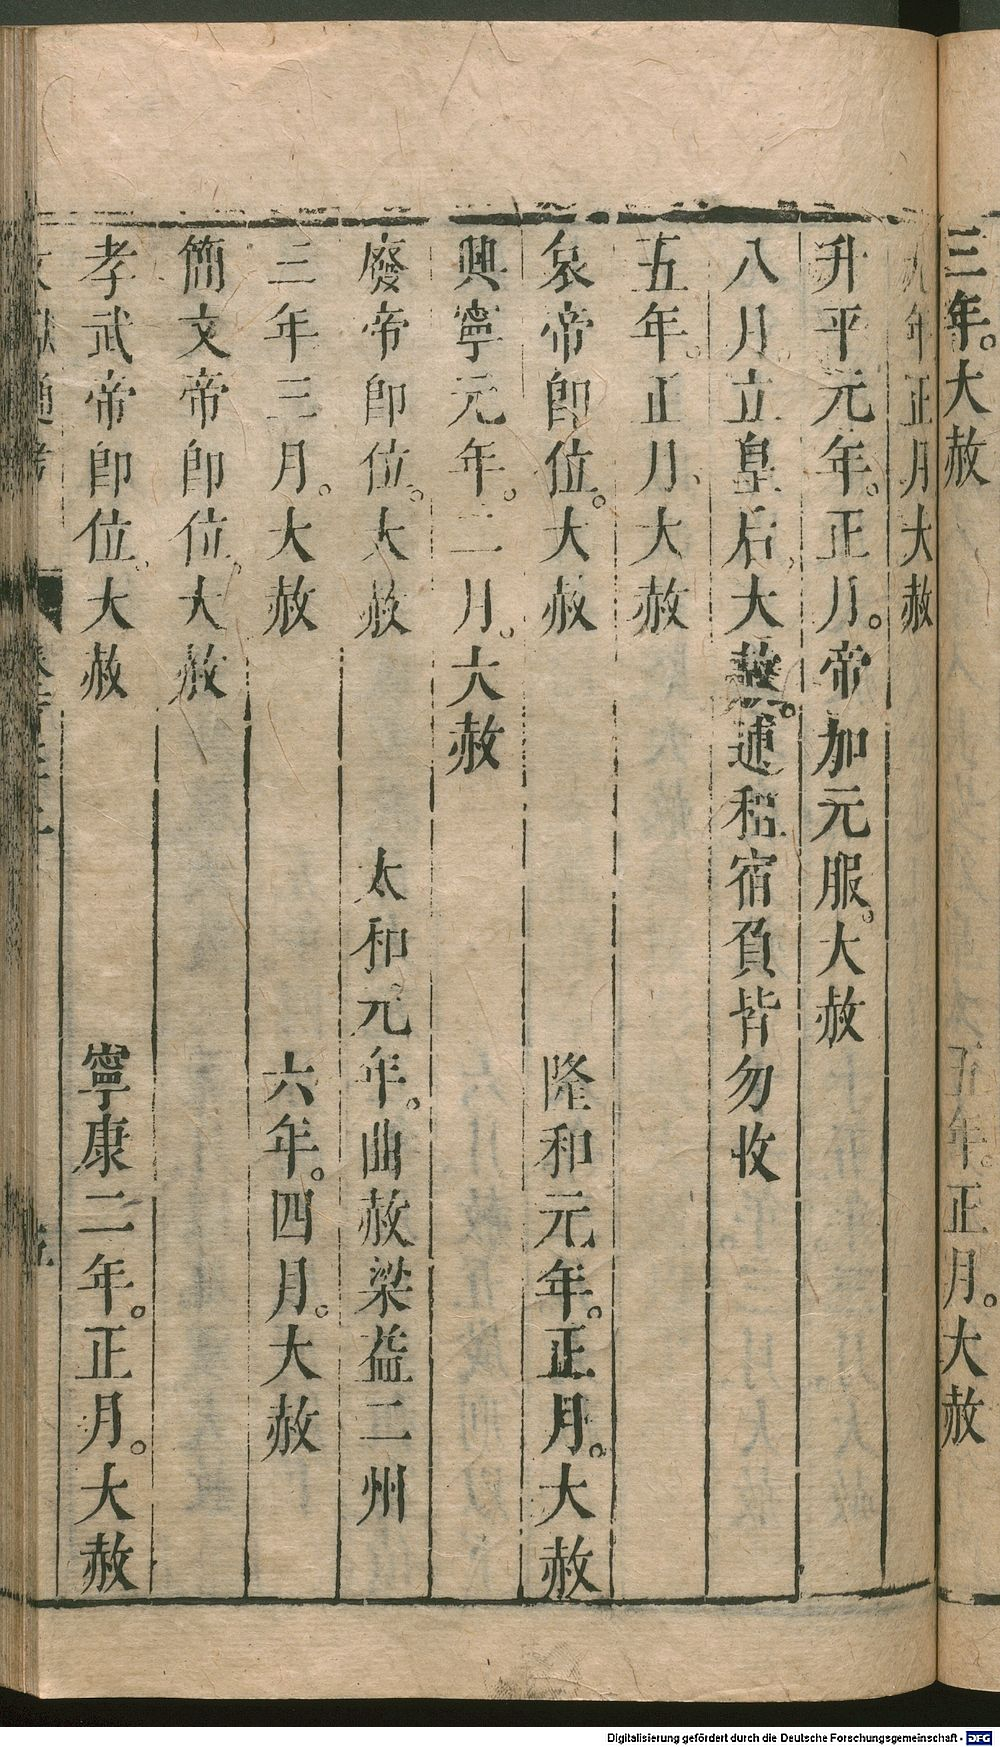 三年。大赦　五年。正月。大赦
八年正月大赦
升平元年。正月。帝加元服。大赦
八月。立皇后。大赦。逋租宿負皆勿收
五年。正月。大赦
哀帝卽位。大赦　隆和元年。正月。大赦
興寧元年。二月。大赦
廢帝卽位。大赦　太和元年。曲赦梁益二州
三年三月。大赦　六年。四月。大赦
簡文帝卽位。大赦
孝武帝卽位。大赦　寧康二年。正月。大赦
文獻通考
Digitalisierung gefördert durch die Deutsche Forschungsgemeinschaft - DFG